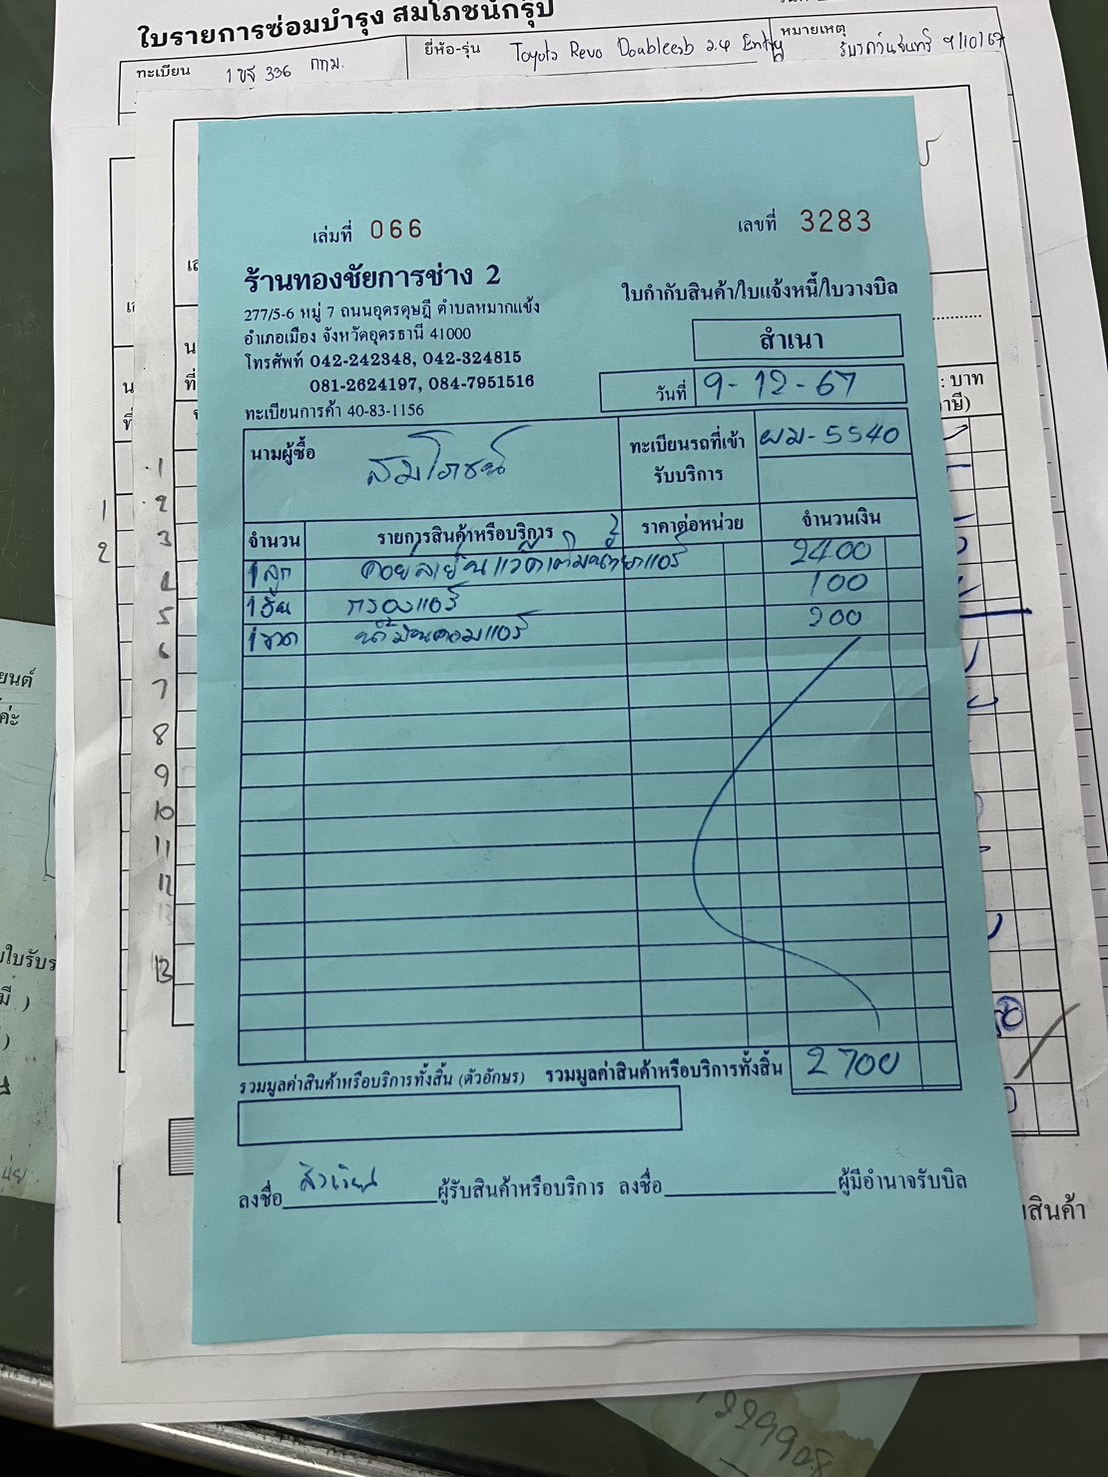 ใบรายการซ่อมบำรุง สมโภชน์กรุ๊ป
ทะเบียน 1 ขฐ 336 กทม.
ยี่ห้อ-รุ่น Toyota Revo Doublecab 2.4 Entry
หมายเหตุ
9/10/67
เล่มที่ 066
เลขที่ 3283
ร้านทองชัยการช่าง 2
277/5-6 หมู่ 7 ถนนอุดรดุษฎี ตำบลหมากแข้ง
อำเภอเมือง จังหวัดอุดรธานี 41000
โทรศัพท์ 042-242348, 042-324815
081-2624197, 084-7951516
ทะเบียนการค้า 40-83-1156
ใบกำกับสินค้า/ใบแจ้งหนี้/ใบวางบิล
สำเนา
วันที่ 9-12-67
นามผู้ซื้อ สมโภชน์
ทะเบียนรถที่เข้ารับบริการ ผม-5540
จำนวน รายการสินค้าหรือบริการ ราคาต่อหน่วย จำนวนเงิน
1 ลูก คอยล์เย็น แว๊คเติมน้ำยาแอร์ 2400
1 อัน กรองแอร์ 100
1 ขวด น้ำมันคอมแอร์ 200
รวมมูลค่าสินค้าหรือบริการทั้งสิ้น (ตัวอักษร) รวมมูลค่าสินค้าหรือบริการทั้งสิ้น 2700
ลงชื่อ ผู้รับสินค้าหรือบริการ ลงชื่อ ผู้มีอำนาจรับบิล
1
2
3
4
5
6
7
8
9
10
11
12
13
1
2
: บาท
สินค้า
ยนต์
ค่ะ
ใบรับร
มี )